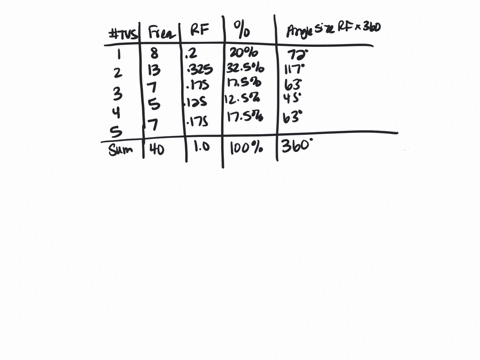 #TVS Freq RF % Angle Size RF x 360
1 8 .2 20% 72°
2 13 .325 32.5% 117°
3 7 .175 17.5% 63°
4 5 .125 12.5% 45°
5 7 .175 17.5% 63°
Sum 40 1.0 100% 360°